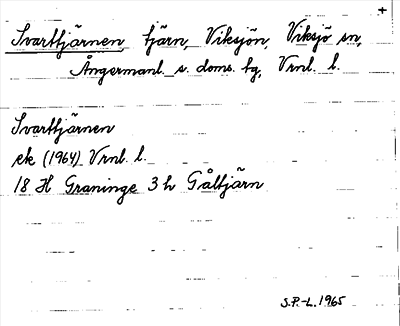 +
Svarttjärnen, tjärn, Viksjön, Viksjö sn,
Ångermanl. s. doms. tg, Vrnl. l.
Svarttjärnen
ek (1964) Vrnl. l.
18 H Graninge 3 h Gåltjärn
S.P.-L. 1965